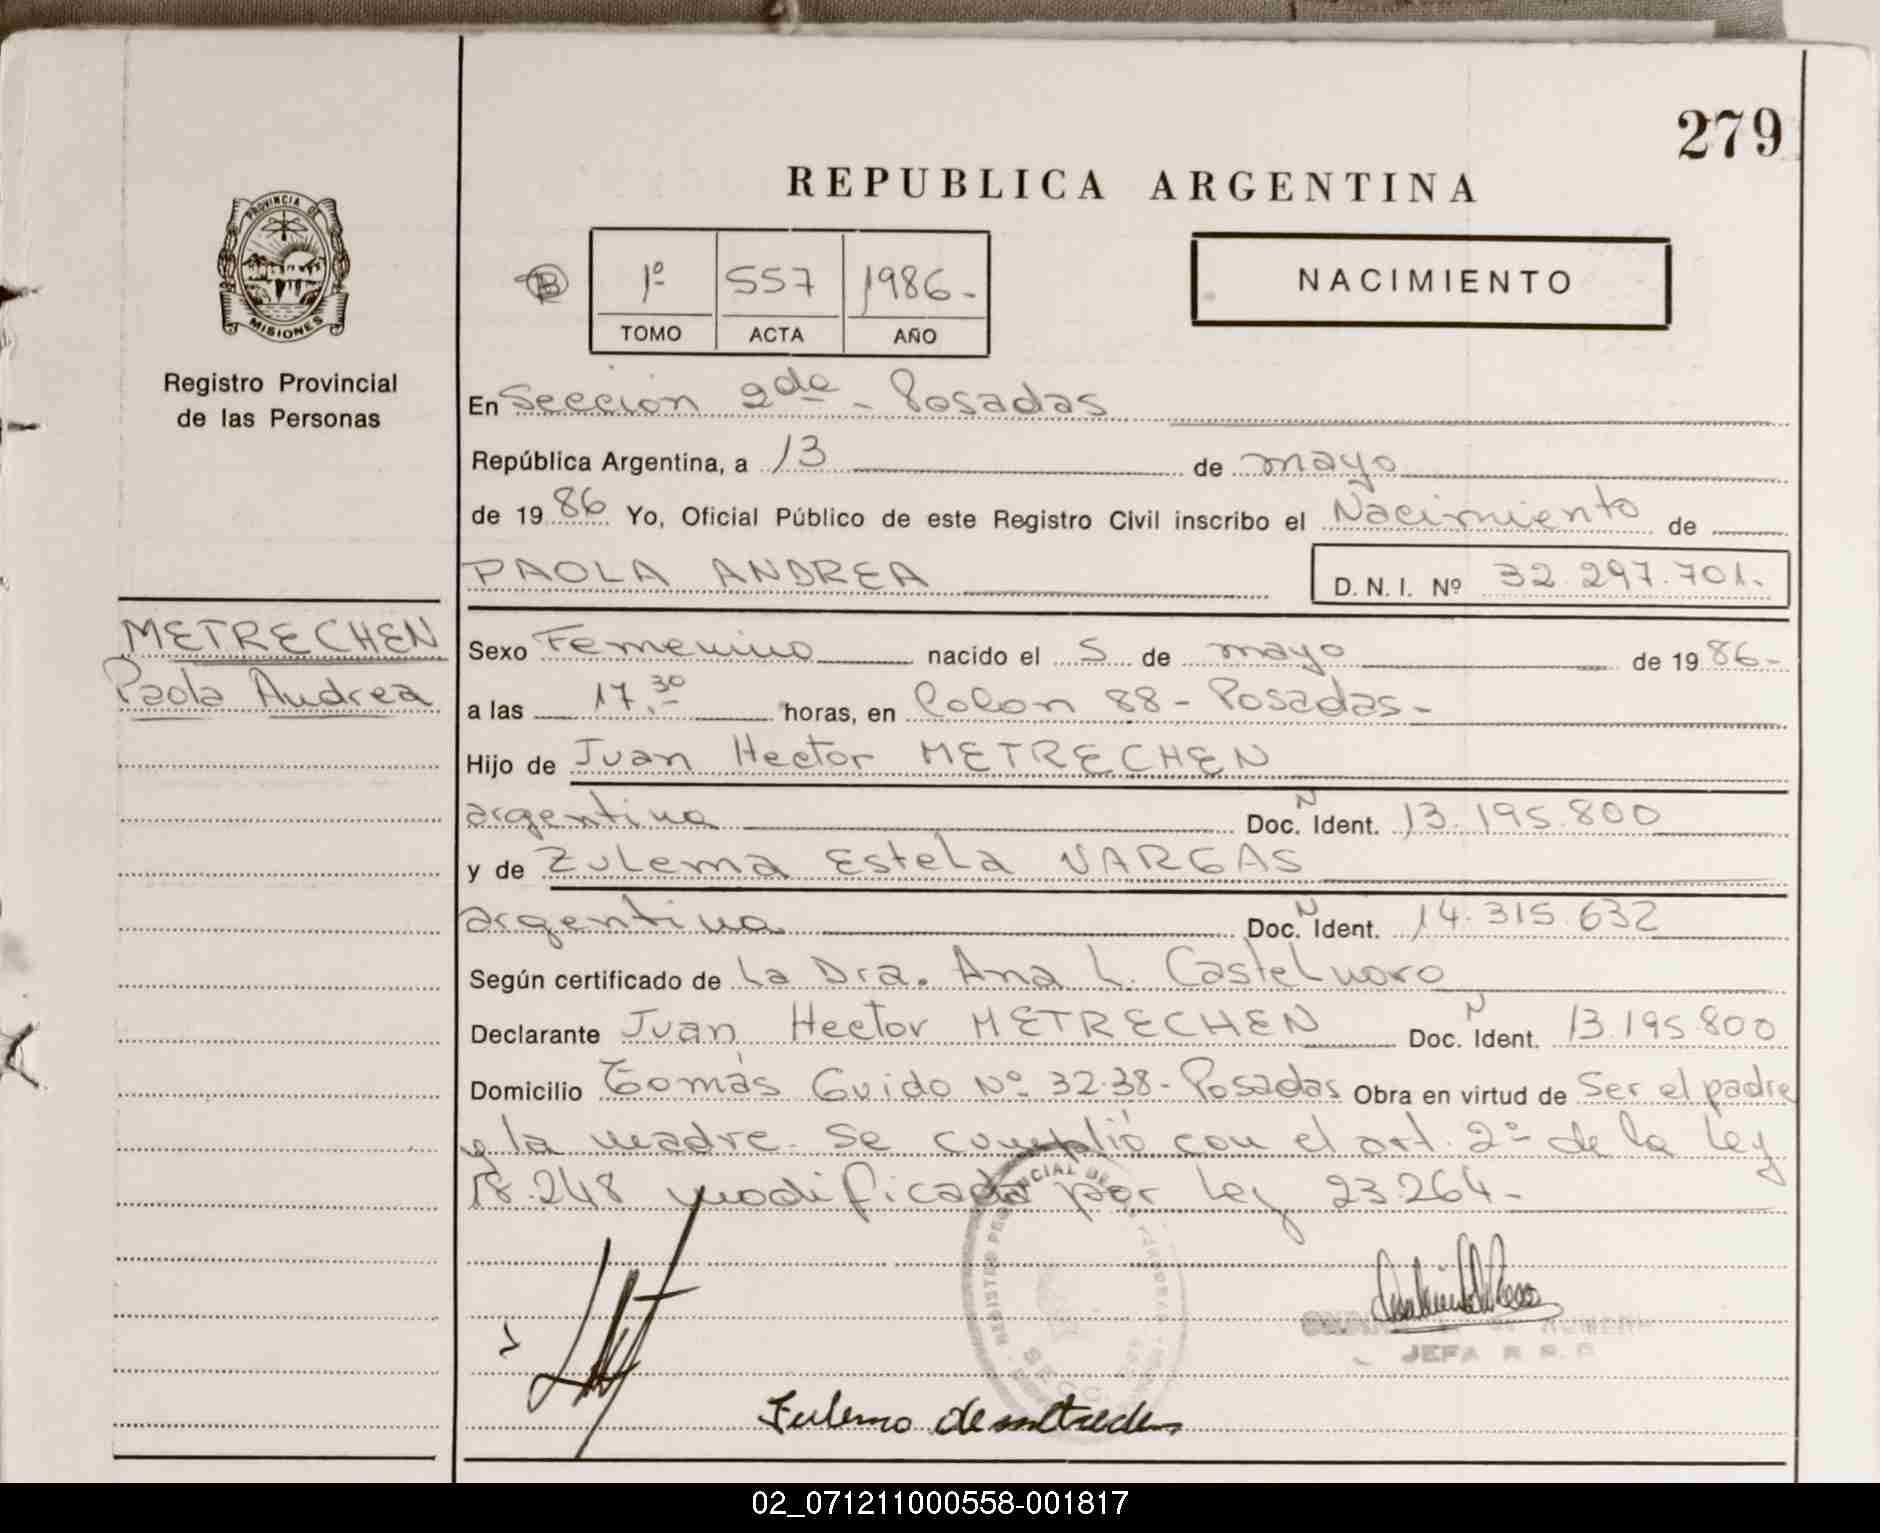 279
REPUBLICA ARGENTINA
PROVINCIA DE
MISIONES
Registro Provincial
de las Personas
B
1º 557 1986-
TOMO ACTA AÑO
NACIMIENTO
En Sección 2da - Posadas
República Argentina, a 13 de mayo
de 1986 Yo, Oficial Público de este Registro Civil inscribo el Nacimiento de
PAOLA ANDREA D. N. I. Nº 32.297.701.
METRECHEN
Paola Andrea
Sexo Femenino nacido el 5 de mayo de 1986-
a las 17,30 horas, en Colon 88 - Posadas-
Hijo de Juan Hector METRECHEN
argentina Doc. N Ident. 13.195.800
y de Zulema Estela VARGAS
argentina Doc. N Ident. 14.315.632
Según certificado de la Dra. Ana L. Castelnovo
Declarante Juan Hector METRECHEN Doc. N Ident. 13.195.800
Domicilio Tomás Guido Nº 32-38- Posadas Obra en virtud de Ser el padre
y la madre. Se cumplió con el art. 2º de la Ley
18.248 modificada por Ley 23.264-
JEFA
02_071211000558-001817